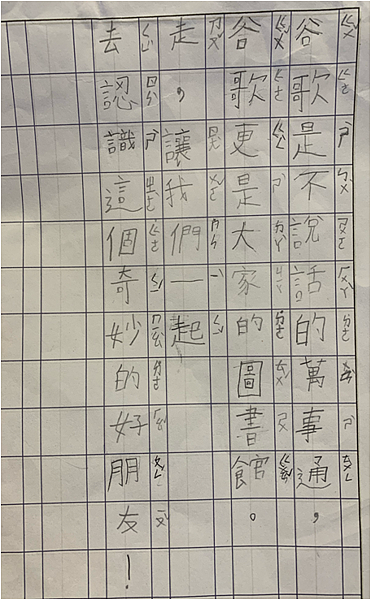 谷歌是不說話的萬事通，
谷歌更是大家的圖書館。
走，讓我們一起
去認識這個奇妙的好朋友！